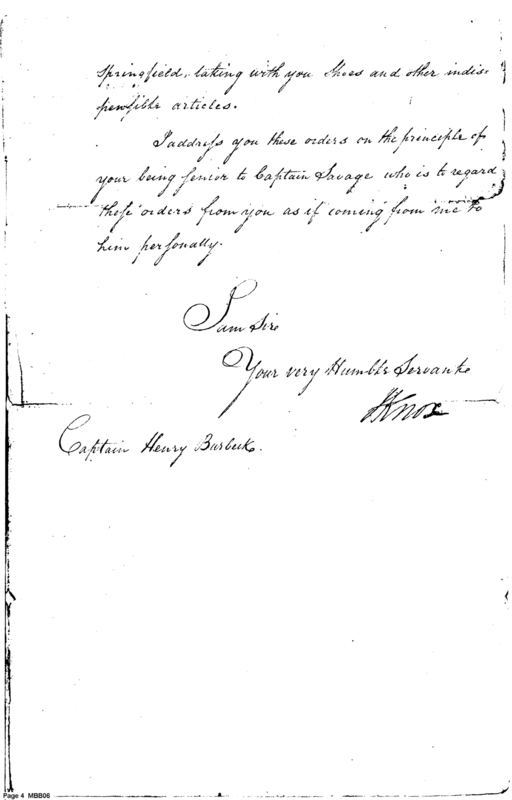 Springfield, taking with you Shoes and other indis-
pensible articles.
I address you these orders on the principle of
your being senior to Captain Savage who is to regard
these orders from you as if coming from me to
him personally.
I am Sir
Your very Humble Servant
HKnox
Captain Henry Burbeck.
Page 4 MBB06